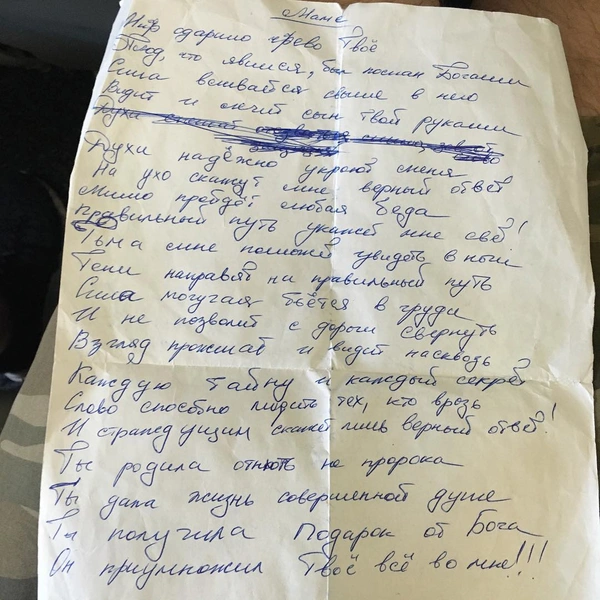 Маме
Мир одарило чрево Твоё
Плод, что явился, был послан Богами
Сила вливается свыше в него
Видит и лечит сын твой руками
Духа
Духи надёжно укроют меня
На ухо скажут мне верный ответ
Мимо пройдёт любая беда
Правильный путь укажет мне свет!
Тьма мне поможет увидеть в ночи
Тени направят на правильный путь
Сила могучая бьётся в груди
И не позволит с дороги свернуть
Взгляд прожигает и видит насквозь
Каждую тайну и каждый секрет
Слово способно людить тех, кто врозь
И страждущим скажет лишь верный ответ!
Ты родила отнють не пророка
Ты дала жизнь совершенной душе
Ты получила Подарок от Бога
Он приумножил Твоё всё во мне!!!